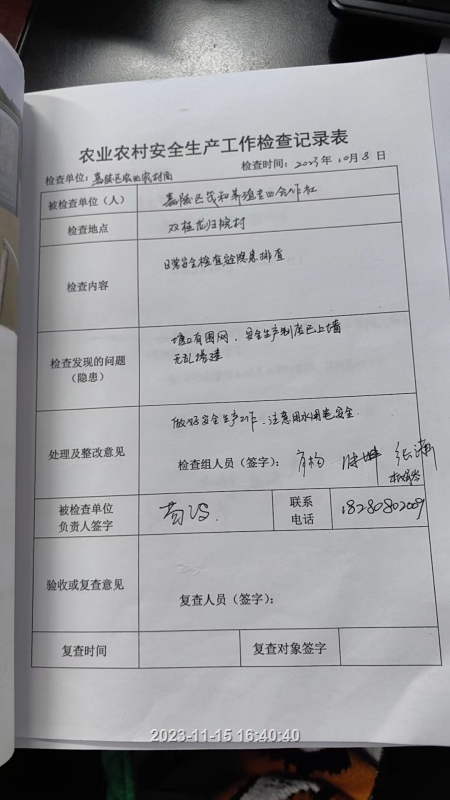 农业农村安全生产工作检查记录表
检查单位：嘉陵区农业农村局 检查时间：2023年10月8日
被检查单位（人） 嘉陵区茂和养殖专业合作社
检查地点 双桂龙归院村
检查内容 日常安全检查，隐患排查
检查发现的问题（隐患） 有围网，安全生产制度已上墙
无乱搭建
处理及整改意见 做好安全生产工作，注意用水用电安全
检查组人员（签字）：
被检查单位负责人签字 联系电话 18280802009
验收或复查意见
复查人员（签字）：
复查时间 复查对象签字
2023-11-15 16:40:40